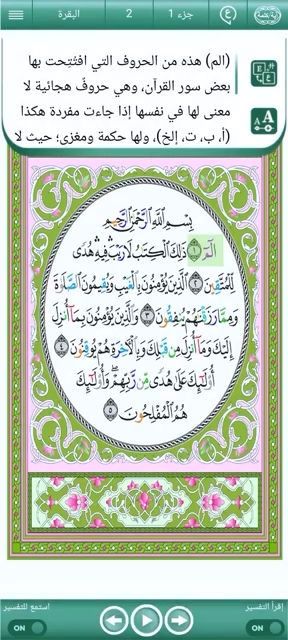 آية/كلمة
جزء 1
2
البقرة
(الم) هذه من الحروف التي افتُتِحت بها
بعض سور القرآن، وهي حروفٌ هجائية لا
معنى لها في نفسها إذا جاءت مفردة هكذا
(أ، ب، ت، إلخ)، ولها حكمة ومغزى؛ حيث لا
A A
بِسْمِ ٱللَّهِ ٱلرَّحْمَٰنِ ٱلرَّحِيمِ
الٓمٓ ١ ذَٰلِكَ ٱلْكِتَٰبُ لَا رَيْبَ ۛ فِيهِ ۛ هُدًى
لِّلْمُتَّقِينَ ٢ ٱلَّذِينَ يُؤْمِنُونَ بِٱلْغَيْبِ وَيُقِيمُونَ ٱلصَّلَوٰةَ
وَمِمَّا رَزَقْنَٰهُمْ يُنفِقُونَ ٣ وَٱلَّذِينَ يُؤْمِنُونَ بِمَآ أُنزِلَ
إِلَيْكَ وَمَآ أُنزِلَ مِن قَبْلِكَ وَبِٱلْءَاخِرَةِ هُمْ يُوقِنُونَ ٤
أُو۟لَٰٓئِكَ عَلَىٰ هُدًى مِّن رَّبِّهِمْ ۖ وَأُو۟لَٰٓئِكَ
هُمُ ٱلْمُفْلِحُونَ ٥
إقرأ التفسير
استمع للتفسير
ON
ON